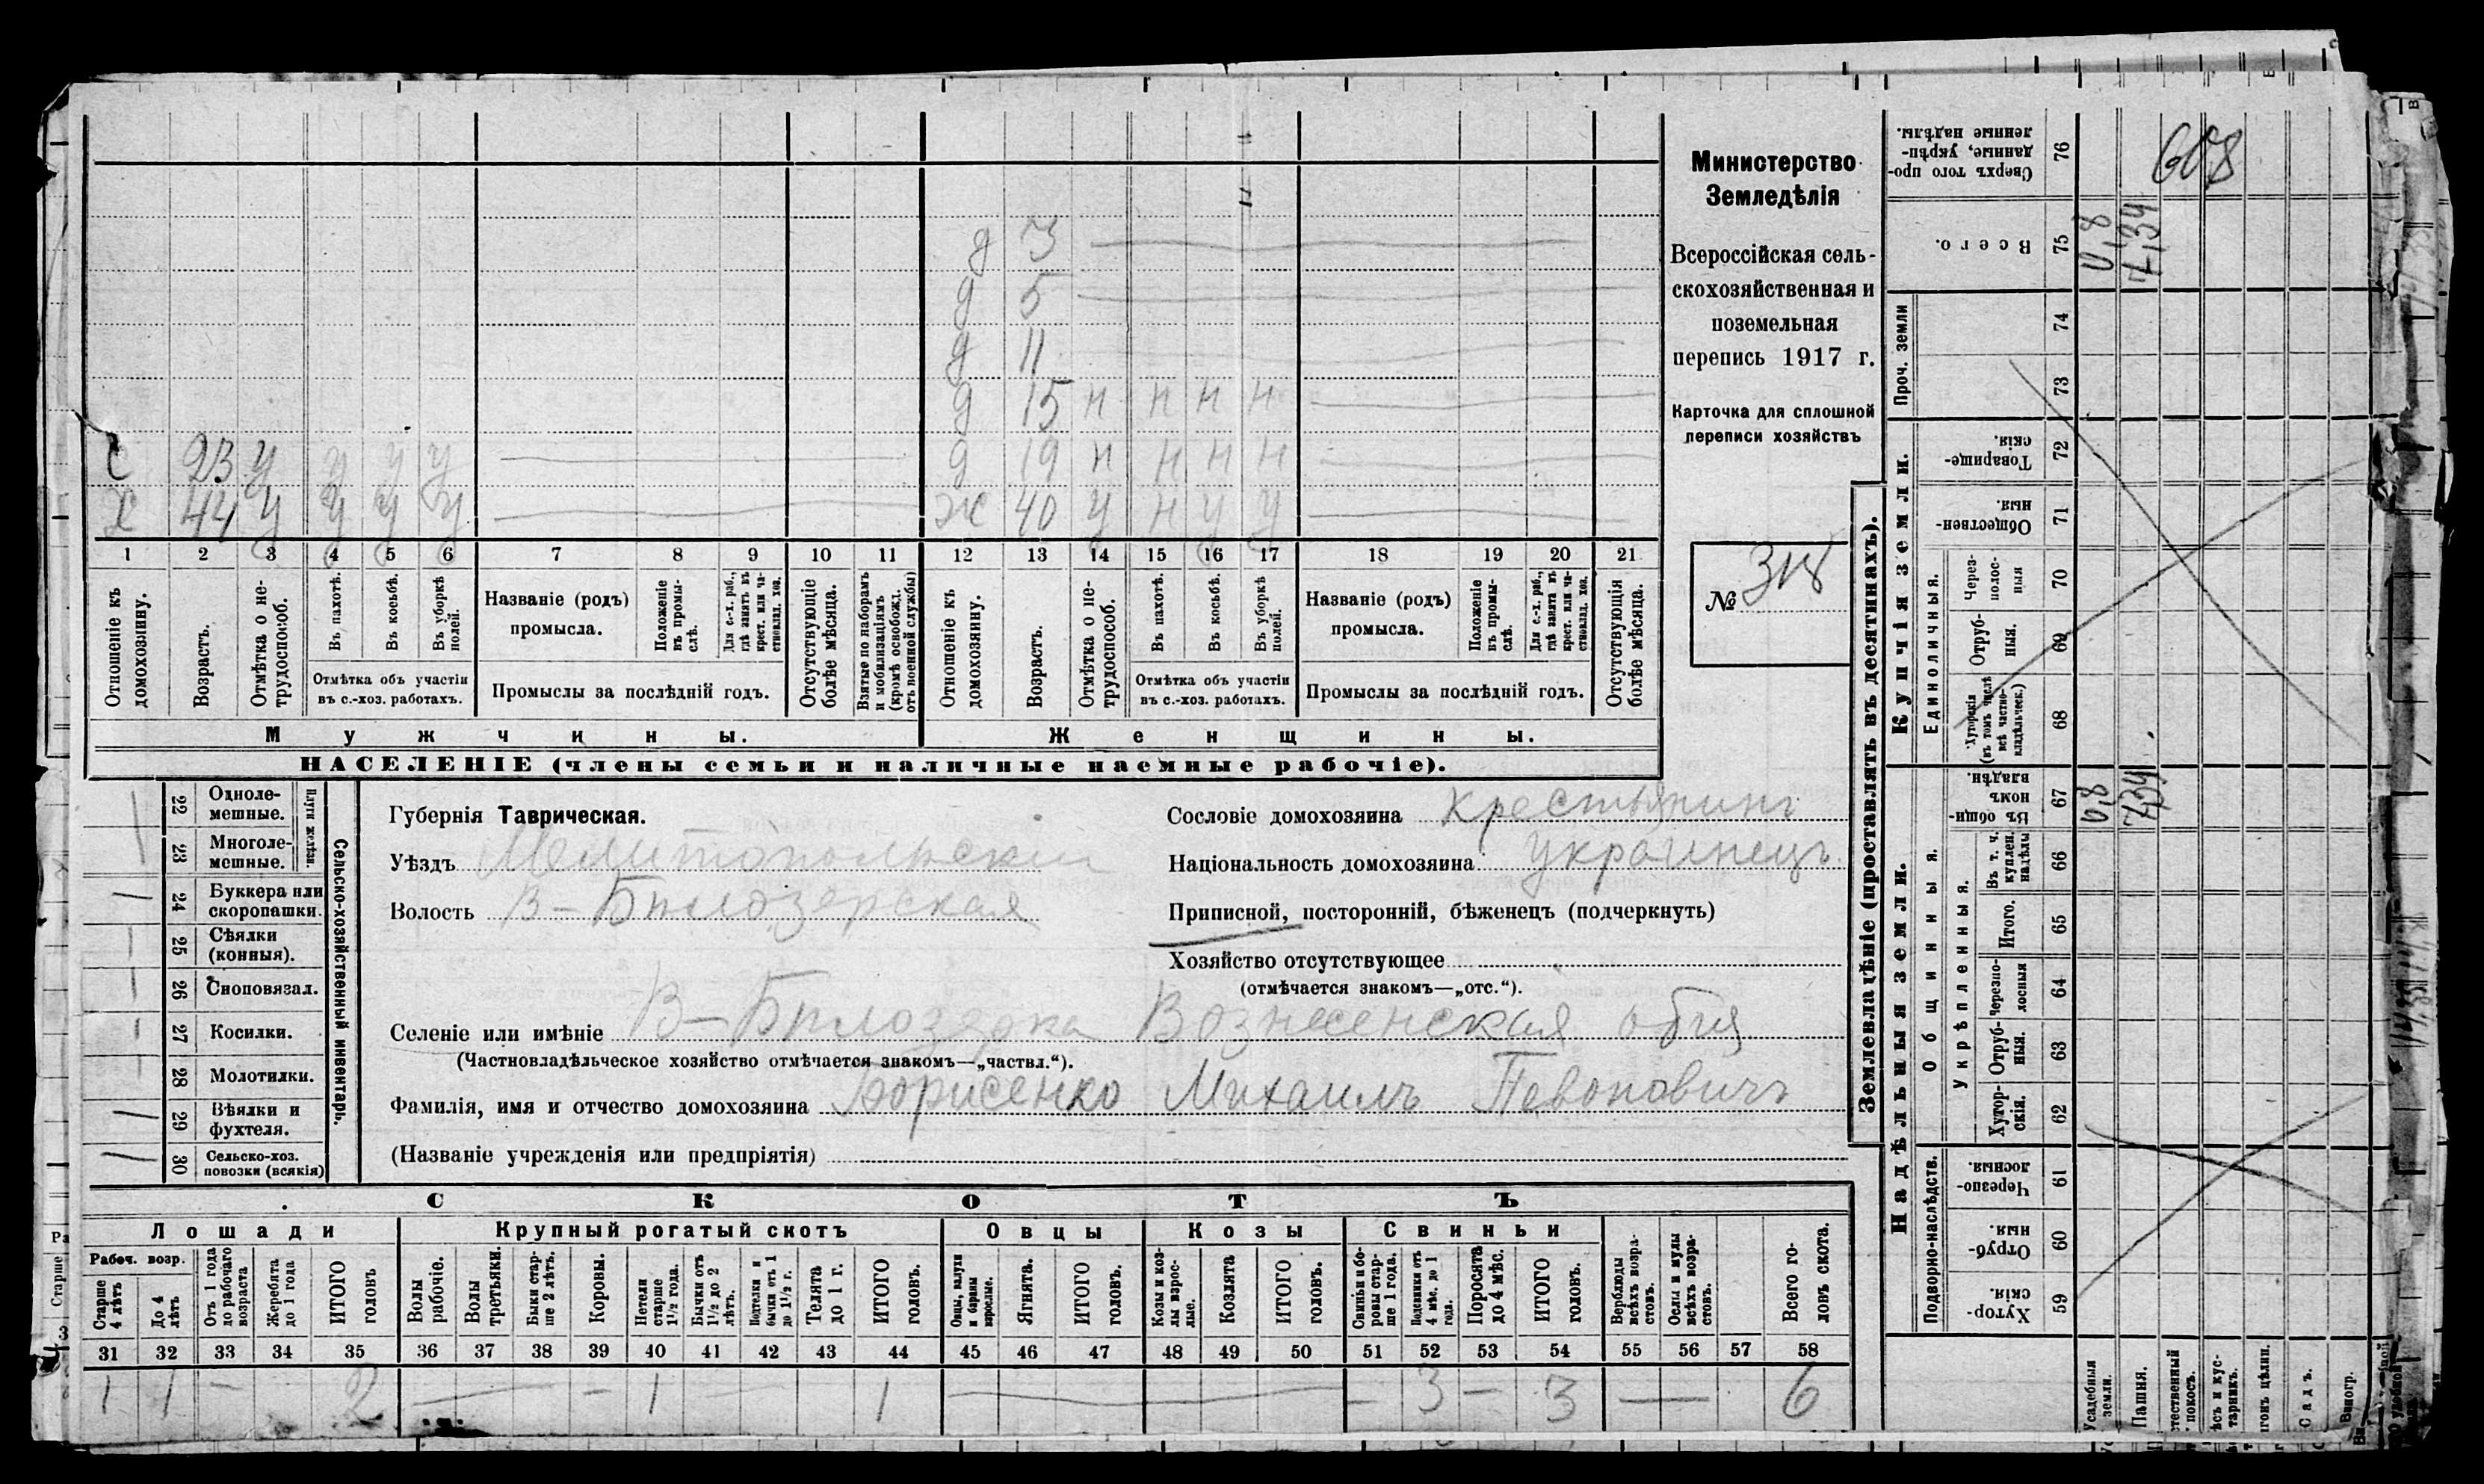 608
Министерство
Земледѣлія
Всероссійская сель-
скохозяйственная и
поземельная
перепись 1917 г.
Карточка для сплошной
переписи хозяйствъ
№ 318
д 3
д 5
д 11
д 15 н н н н
с 23 у у у у д 19 н н н н
х 44 у у у у ж 40 у н у у
1 2 3 4 5 6 7 8 9 10 11 12 13 14 15 16 17 18 19 20 21
Отношеніе къ домохозяину.
Возрастъ.
Отмѣтка о не-трудоспособ.
Въ пахотѣ.
Въ косьбѣ.
Въ уборкѣ полей.
Отмѣтка объ участіи
въ с.-хоз. работахъ.
Названіе (родъ)
промысла.
Положеніе въ промы-слѣ.
Для с.-х. раб., гдѣ занятъ въ крест. или ча-стновлад. хоз.
Промыслы за послѣдній годъ.
Отсутствующіе болѣе мѣсяца.
Взятые по наборамъ и мобилизаціямъ (кромѣ освобожд. отъ военной службы)
Отношеніе къ домохозяину.
Возрастъ.
Отмѣтка о не-трудоспособ.
Въ пахотѣ.
Въ косьбѣ.
Въ уборкѣ полей.
Отмѣтка объ участіи
въ с.-хоз. работахъ.
Названіе (родъ)
промысла.
Положеніе въ промы-слѣ.
Для с.-х. раб., гдѣ занята въ крест. или ча-стновлад. хоз.
Промыслы за послѣдній годъ.
Отсутствующія болѣе мѣсяца.
Мужчины. Женщины.
НАСЕЛЕНІЕ (члены семьи и наличные наемные рабочіе).
Сельско-хозяйственный инвентарь.
Плуги желѣзн.
22 Одноле-мешные.
23 Многоле-мешные.
24 Буккера или скоропашки.
25 Сѣялки (конныя).
26 Сноповязал.
27 Косилки.
28 Молотилки.
29 Вѣялки и фухтеля.
30 Сельско-хоз. повозки (всякія)
Губернія Таврическая.
Уѣздъ Мелитопольскій
Волость В-Бѣлозерская
Сословіе домохозяина крестьянинъ
Національность домохозяина украинецъ
Приписной, посторонній, бѣженецъ (подчеркнуть)
Хозяйство отсутствующее
(отмѣчается знакомъ—„отс.“).
Селеніе или имѣніе В-Бѣлозерка Вознесенская общ
(Частновладѣльческое хозяйство отмѣчается знакомъ—„частвл.“).
Фамилія, имя и отчество домохозяина Борисенко Михаилъ
(Названіе учрежденія или предпріятія)
СКОТЪ
Лошади Крупный рогатый скотъ Овцы Козы Свиньи
Рабоч. возр.
Старше 4 лѣтъ
До 4 лѣтъ
Отъ 1 года до рабочаго возраста
Жеребята до 1 года
ИТОГО головъ
Волы рабочіе.
Волы третьяки.
Быки стар-ше 2 лѣтъ.
Коровы.
Нетели старше 1½ года.
Бычки отъ 1½ до 2 лѣтъ.
Подтелки и бычки отъ 1 до 1½ г.
Телята до 1 г.
ИТОГО головъ.
Овцы, валухи и бараны взрослые.
Ягнята.
ИТОГО головъ.
Козы и коз-лы взрос-лые.
Козлята
ИТОГО головъ.
Свиньи и бо-ровы стар-ше 1 года.
Подсвинки отъ 4 мѣс. до 1 года.
Поросята до 4 мѣс.
ИТОГО головъ.
Верблюды всѣхъ возра-стовъ.
Ослы и мулы всѣхъ возра-стовъ.
Всего го-ловъ скота.
31 32 33 34 35 36 37 38 39 40 41 42 43 44 45 46 47 48 49 50 51 52 53 54 55 56 57 58
1 1 — 2 — — 1 — 1 — — 3 — 3 — 6
Землевладѣніе (проставлять въ десятинахъ).
Надѣльныя земли. Купчія земли. Проч. земли
Подворно-наслѣдств.
Общинныя.
Укрѣпленныя.
Единоличныя.
59 Хутор-скія.
60 Отруб-ныя.
61 Черезпо-лосныя.
62 Хутор-скія.
63 Отруб-ныя.
64 Черезпо-лосныя
65 Итого.
66 Въ т. ч. куплен. надѣлы
67 Въ общин-номъ владѣн. 0,8 7,34
68 Хуторскія (въ томъ числѣ всѣ частно-владѣльческ.)
69 Отруб-ныя.
70 Через-полос-ныя
71 Обществен-ныя.
72 Товарище-скія.
73
74
75 Всего. 0,8 7,34
76 Сверхъ того про-данные, укрѣп-ленные надѣлы.
Усадебныя земли.
Пашня.
Садъ.
Виногр.